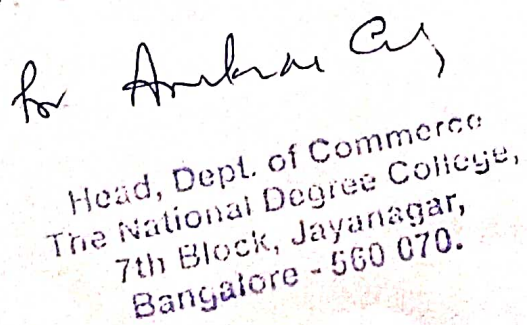 for
Head, Dept. of Commerce
The National Degree College,
7th Block, Jayanagar,
Bangalore - 560 070.